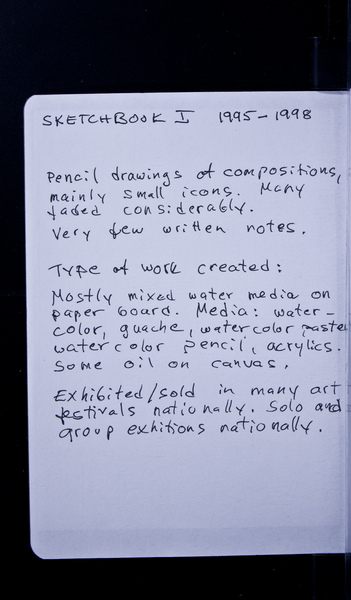 SKETCHBOOK I 1995-1998
Pencil drawings of compositions,
mainly small icons. Many
faded considerably.
Very few written notes.
Type of work created:
Mostly mixed water media on
paper board. Media: water-
color, guache, watercolor paste
watercolor pencil, acrylics.
Some oil on canvas.
Exhibited/sold in many art
festivals nationally. Solo and
group exhitions nationally.